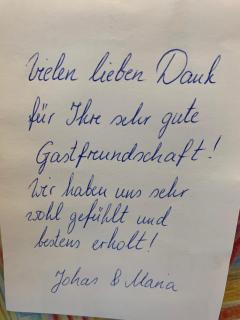 Vielen lieben Dank
für Ihre sehr gute
Gastfreundschaft!
Wir haben uns sehr
wohl gefühlt und
bestens erholt!
Johas & Maria